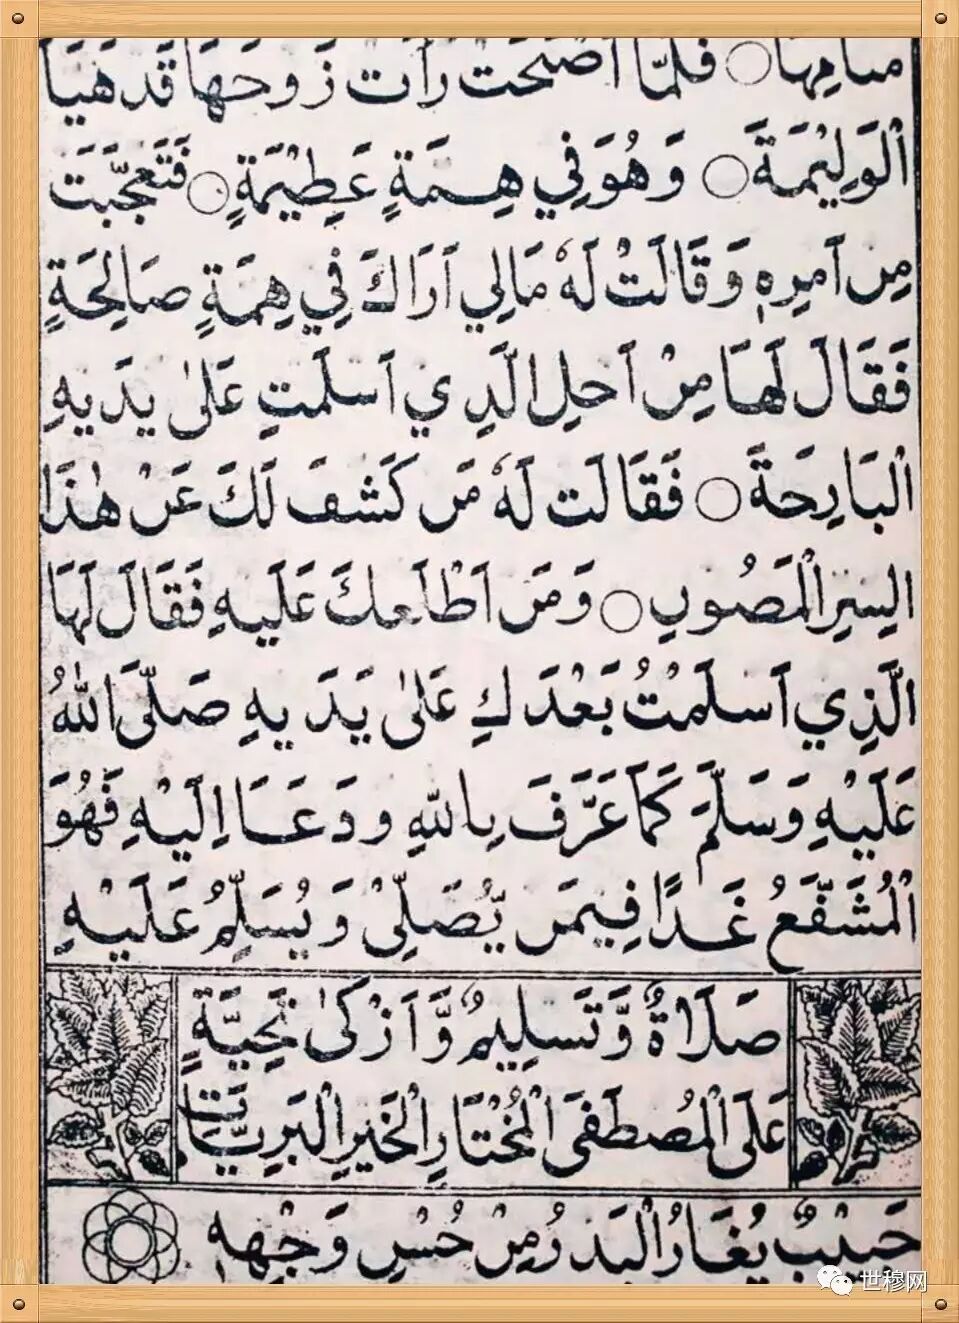 مَنَامِهَا ○ فَلَمَّا اَصْبَحَت رَاَت زَوجَهَا قَد هَيَّا
اْلوَلِيْمَةَ ○ وَهُوَ فِي هِمَّةٍ عَظِيْمَةٍ ○ فَتَعَجَّبَت
مِن اَمرِهٖ وَقَالَتْ لَهٗ مَالِي اَرَاكَ فِي هِمَّةٍ صَالِحَةٍ
فَقَالَ لَهَا مِنْ اَجلِ الَّذِي اَسلَمتِ عَلىٰ يَدَيهِ
اْلبَارِحَةَ ○ فَقَالَت لَهٗ مَن كَشَفَ لَكَ عَنْ هٰذَا
السِرِ اْلمَصُونِ ○ وَمَن اَطلَعكَ عَلَيهِ فَقَالَ لَهَا
الَّذِي اَسلَمْتُ بَعْدَكِ عَلىٰ يَدَيهِ صَلَّى اللهُ
عَلَيْهِ وَسَلَّمَ كَمَا عَرَّفَ بِاللهِ وَدَعَا اِلَيهِ فَهُوَ
اْلمُشَفَّعُ غَدًا فِيمَن يُّصَلِّيْ وَيُسَلِّمُ عَلَيْهِ
صَلَاةٌ وَّتَسلِيمٌ وَّاَزْكىٰ تَحِيَّةٍ
عَلَى اْلمُصطَفَى اْلمُخْتَارِ اْلخَيرِ اْلبَرِيَّاتِ
حَبِيْبٌ يُغَارُ اْلبَدرُ مِنْ حُسْنِ وَجْهِهٖ
世穆网